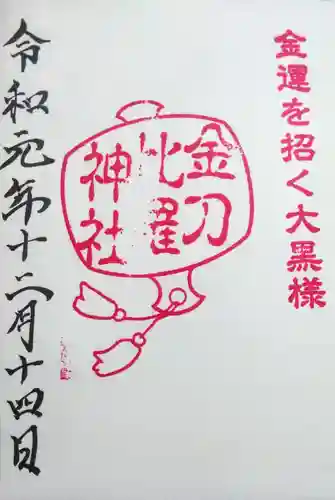 金運を招く大黒様
金刀
比羅
神社
令和元年十二月十四日